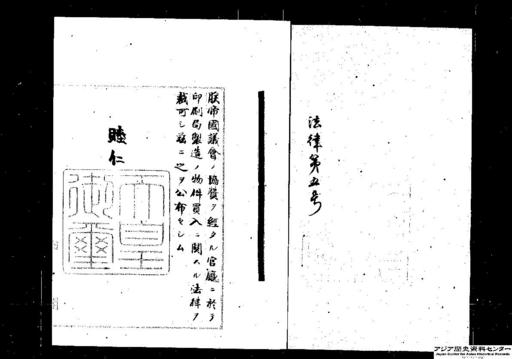 法律第五号
朕帝國議會ノ協賛ヲ經タル官廳ニ於テ
印刷局製造ノ物件買入ニ関スル法律ヲ
裁可シ茲ニ之ヲ公布セシム
睦仁
天皇
御璽
アジア歴史資料センター
Japan Center for Asian Historical Records